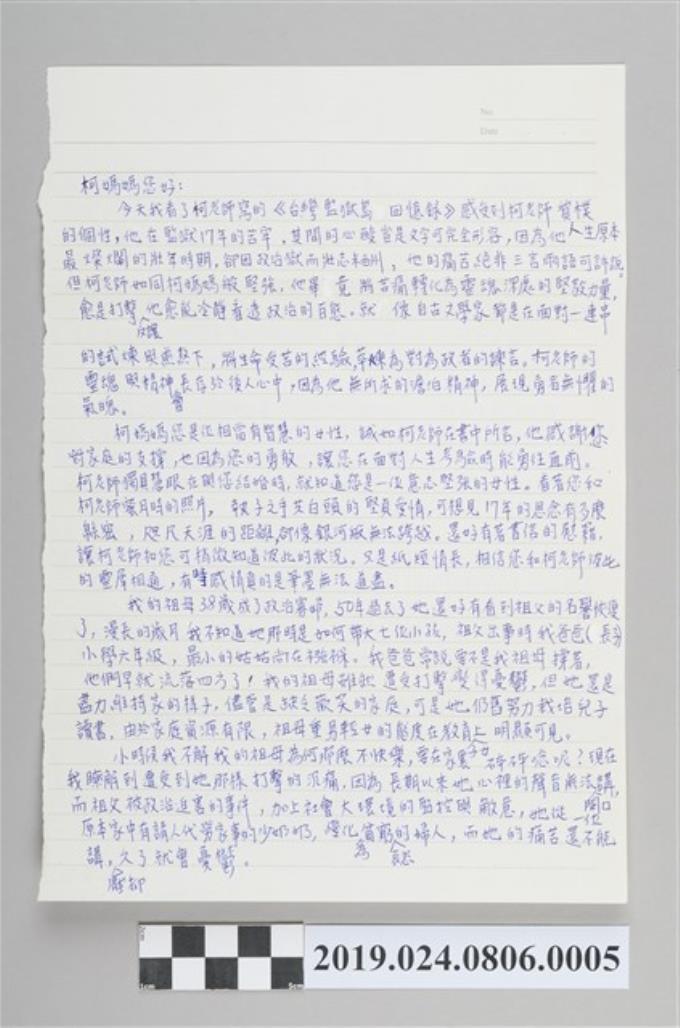 No.
Date
柯媽媽您好：
今天我看了柯老師寫的《台灣監獄島 回憶錄》感受到柯老師質樸
的個性，他在監獄17年的苦牢，其間的心酸豈是文字可完全形容，因為他人生原本
最燦爛的壯年時期，卻因政治獄而壯志未酬，他的痛苦絕非三言兩語可訴說。
但柯老師如同柯媽媽般堅強，他畢竟將苦痛轉化為靈魂深處的堅毅力量，
愈是打擊，他愈能冷靜看透政治的百態。就像自古文學家都是在面對一連串
的試煉與煎熬下，將生命受苦的經驗，焠煉為對為政者的諫言。柯老師的
靈魂與精神會長存於後人心中，因為他無所求的澹泊精神，展現勇者無懼的
氣魄。
柯媽媽您是位相當有智慧的女性，誠如柯老師在書中所言，他感謝您
對家庭的支撐，也因為您的勇敢，讓您在面對人生考驗時能勇往直前。
柯老師獨具慧眼在與您結婚時，就知道您是一位意志堅強的女性。看著您和
柯老師蜜月時的照片，執子之手共白頭的堅貞愛情，可想見17年的思念有多麼
綿密，咫尺天涯的距離，卻像銀河般無法跨越。還好有著書信的慰藉，
讓柯老師和您可稍微知道彼此的狀況。又是紙短情長，相信您和柯老師彼此
的靈犀相通，有時感情真的是筆墨無法道盡。
我的祖母38歲成了政治寡婦，50年過去了她還好有看到祖父的名譽恢復
了，漫長的歲月我不知道她那時是如何帶大七位小孩，祖父出事時我爸爸（長子）
小學六年級，最小的姑姑尚在襁褓。我爸爸常說要不是我祖母撐著，
他們早就流落四方了！我的祖母雖然遭受打擊變得憂鬱，但她還是
盡力維持家的樣子，儘管是缺乏歡笑的家庭，可是她仍舊努力栽培兒子
讀書。由於家庭資源有限，祖母重男輕女的態度在教育上明顯可見。
小時侯我不解我的祖母為何那麼不快樂，要在家裏碎碎唸呢？現在
我瞭解到遭受到她那樣打擊的沉痛，因為長期以來她心裡的聲音無法開口講，
而祖父被政治迫害的事件，加上社會大環境的監控與敵意，她從一位
原本家中有請人代勞家事的少奶奶，變化為貧窮的婦人，而她的痛苦還不能
講，久了就會憂鬱。
2019.024.0806.0005